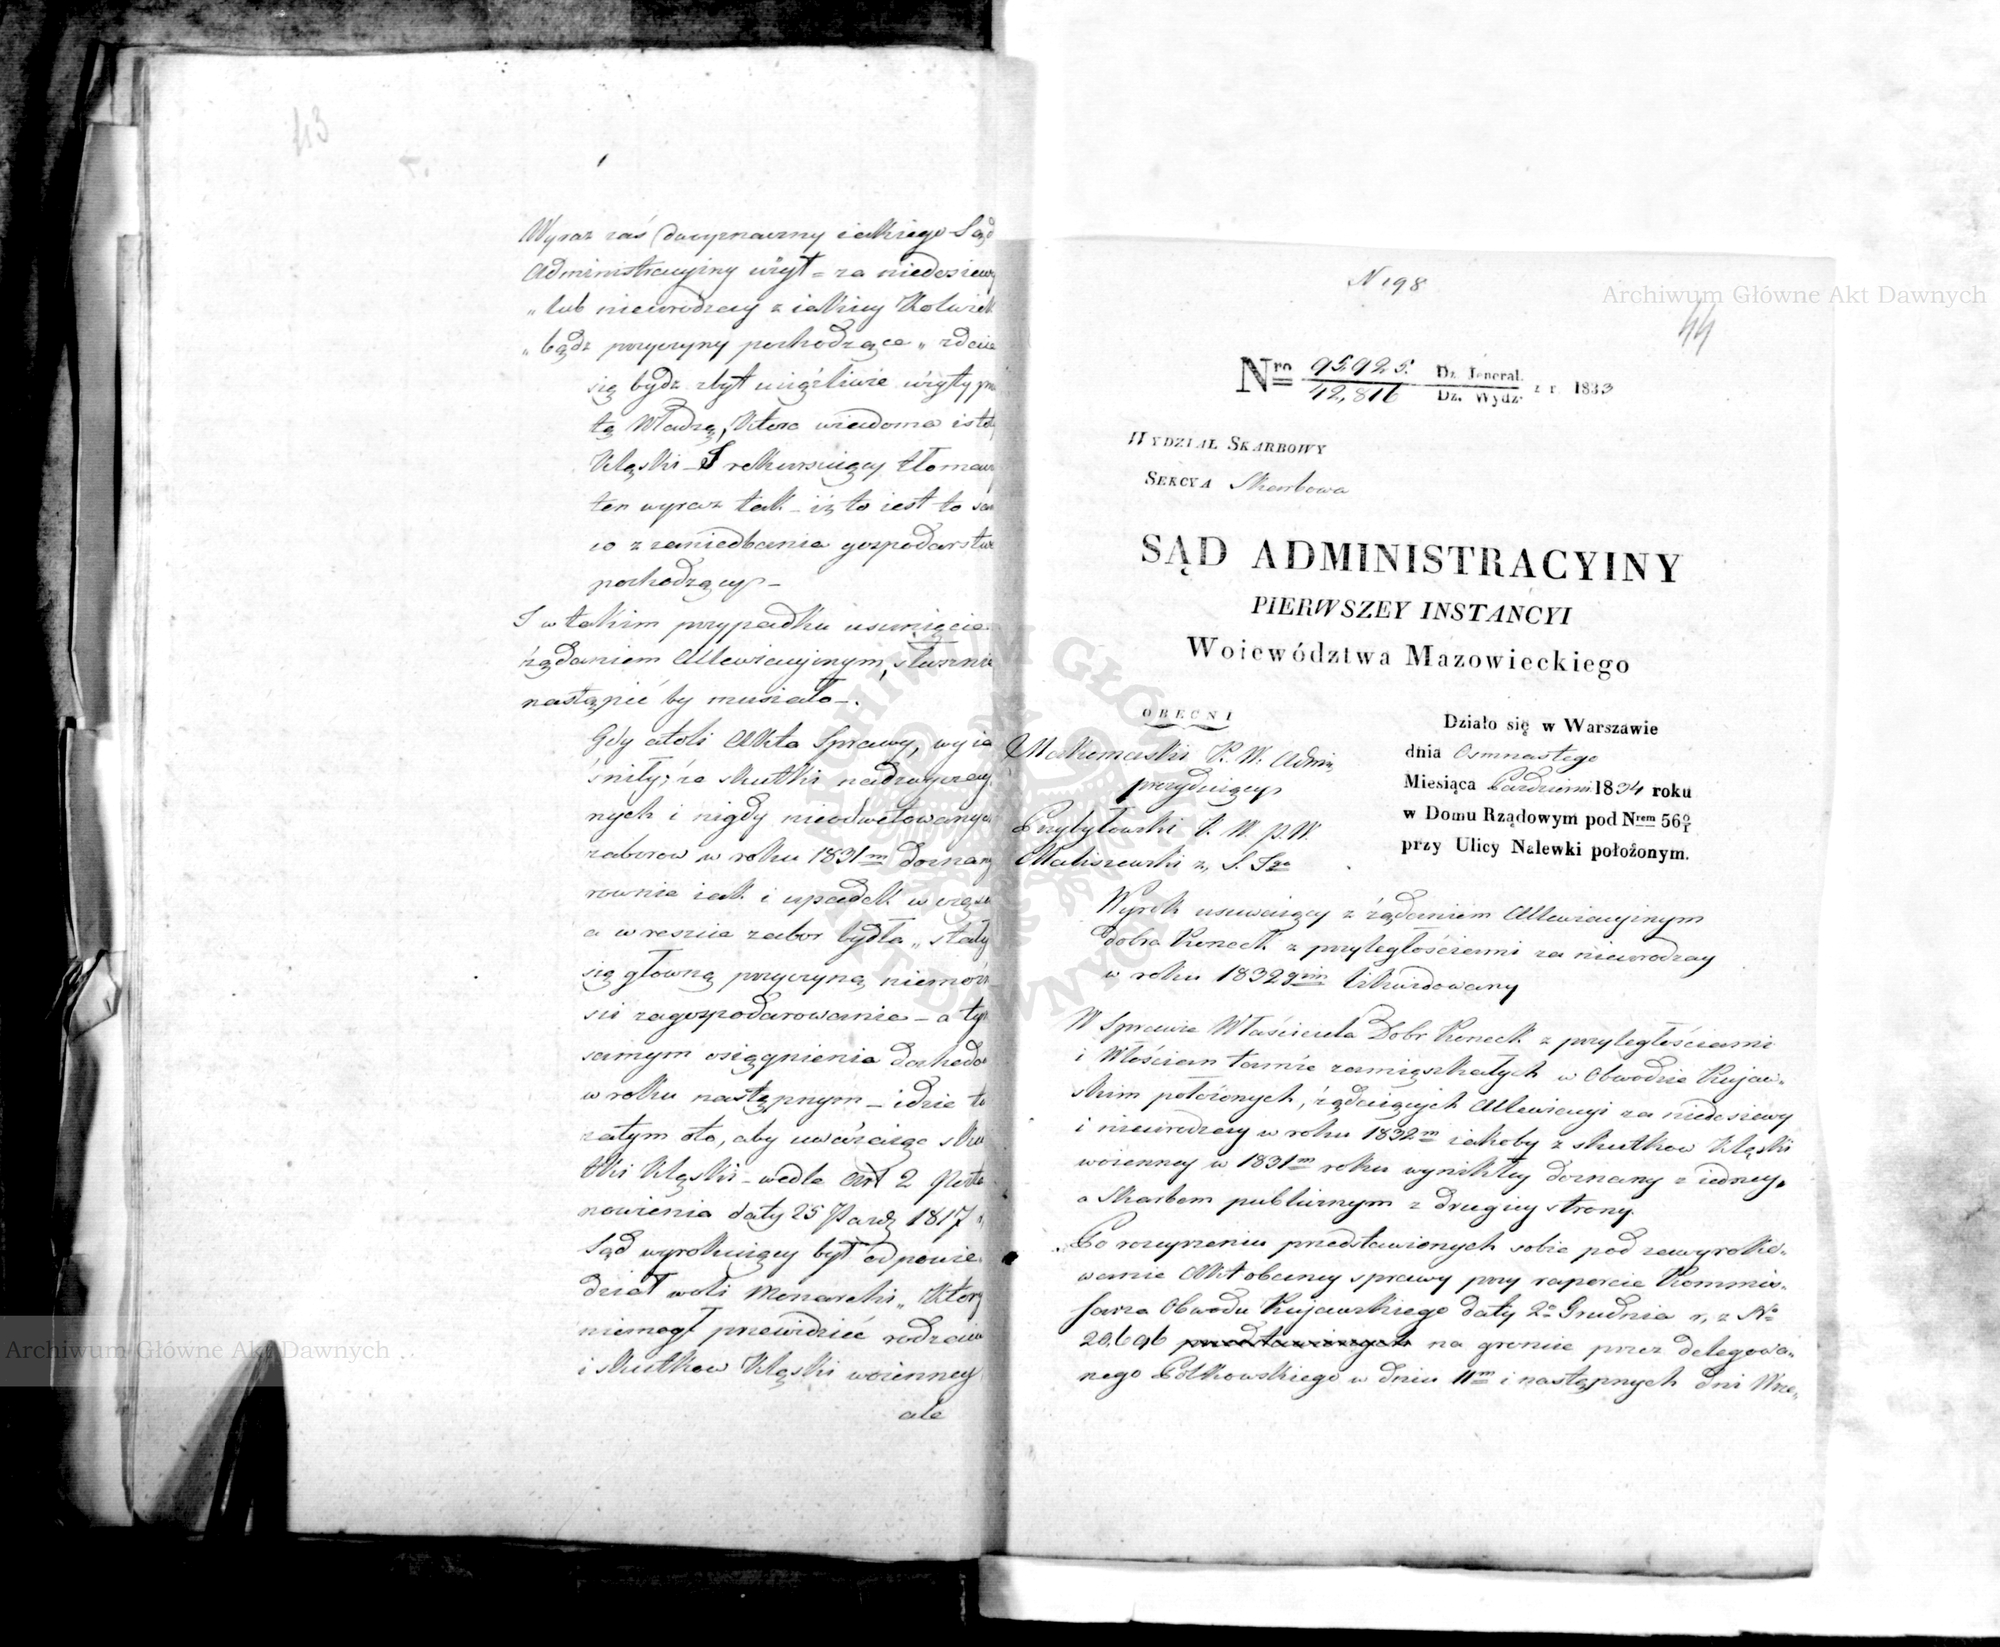 43
Wyraz zaś /: decyznawczy iakiego Sąd
Administracyiny użył = za niedosiewy
„ lub nieurodzay z iakiey kolwiek
„ bądź przyczyny pochodzące „ zdaie
się bydź zbyt uciążliwie użyty prze
tą Władzą, ktora wiadoma istoty
klęski – I rekursuiący tłomaczy
ten wyraz tak – iż to iest to sam
co z zaniedbania gospodarstwa
pochodzący –
I w takim przypadku usunięcie
żądaniem Allewiacyjnym, słusznie
nastąpić by musiało –.
Gdy atoli Akta Sprawy, wyia
śniły, że skutki nadzwyczay
nych i nigdy nieodwetowanych
zaborow w roku 1831m doznany
rownie iak i upadek w czę
a wreszcie zabor bydła „ stały
się główną przyczyną niemoż
ści zagospodarowania – a tym
samym osiągnienia dochodu
w roku następnym – idzie tu
zatym oto, aby uważaiąc sku
tki klęski – wedle Art 2 Posta
nowienia daty 25 Paźdz 1817 r,
Sąd wyrokuiący był odpowie
dział woli Monarchi „ który
niemogł przewidzieć rodzaiu
i skutkow klęski woienney
ale
N 198
Archiwum Główne Akt Dawnych
44
Nro 95925. Dz. Jeneral.
42,816 Dz. Wydz. z r. 1833
WYDZIAŁ SKARBOWY
SEKCYA Skarbowa
SĄD ADMINISTRACYINY
PIERWSZEY INSTANCYI
Woiewództwa Mazowieckiego
OBECNI
Makomaski R. W. Admi,
prezyduiący
Przybyłowski R. W. p. W.
Maliszewski z, S. Sza
Działo się w Warszawie
dnia Osmnastego
Miesiąca Październi 1834 roku
w Domu Rządowym pod Nrem 56
przy Ulicy Nalewki położonym.
Wyrok usuwaiący z żądaniem Allewiacyinym
dobra Koneck z przyległościami za nieurodzay
w roku 1832gim likwidowany
W Sprawie Właściciela Dobr Koneck z przyległościami
i Włościan tamże zamięszkałych w Obwodzie Kujaw-
skim położonych, żądaiących Allewiacyi za niedosiewy
i nieurodzay w roku 1832m iakoby z skutkow klęski
woienney w 1831m roku wynikłey doznany z iedney,
a Skarbem publicznym z drugiey strony.
Po rozczyzeniu przedstawionych sobie pod zawyroko-
wanie Akt obecney sprawy przy raporcie Kommis-
sarza Obwodu Kujawskiego daty 2o Grudnia r, z No
20,696 przedstawionych na groncie przez delegowa-
nego Pólkowskiego w dniu 11m i następnych dni Wrze-
Archiwum Główne Akt Dawnych
ARCHIWUM GŁÓWNE AKT DAWNYCH